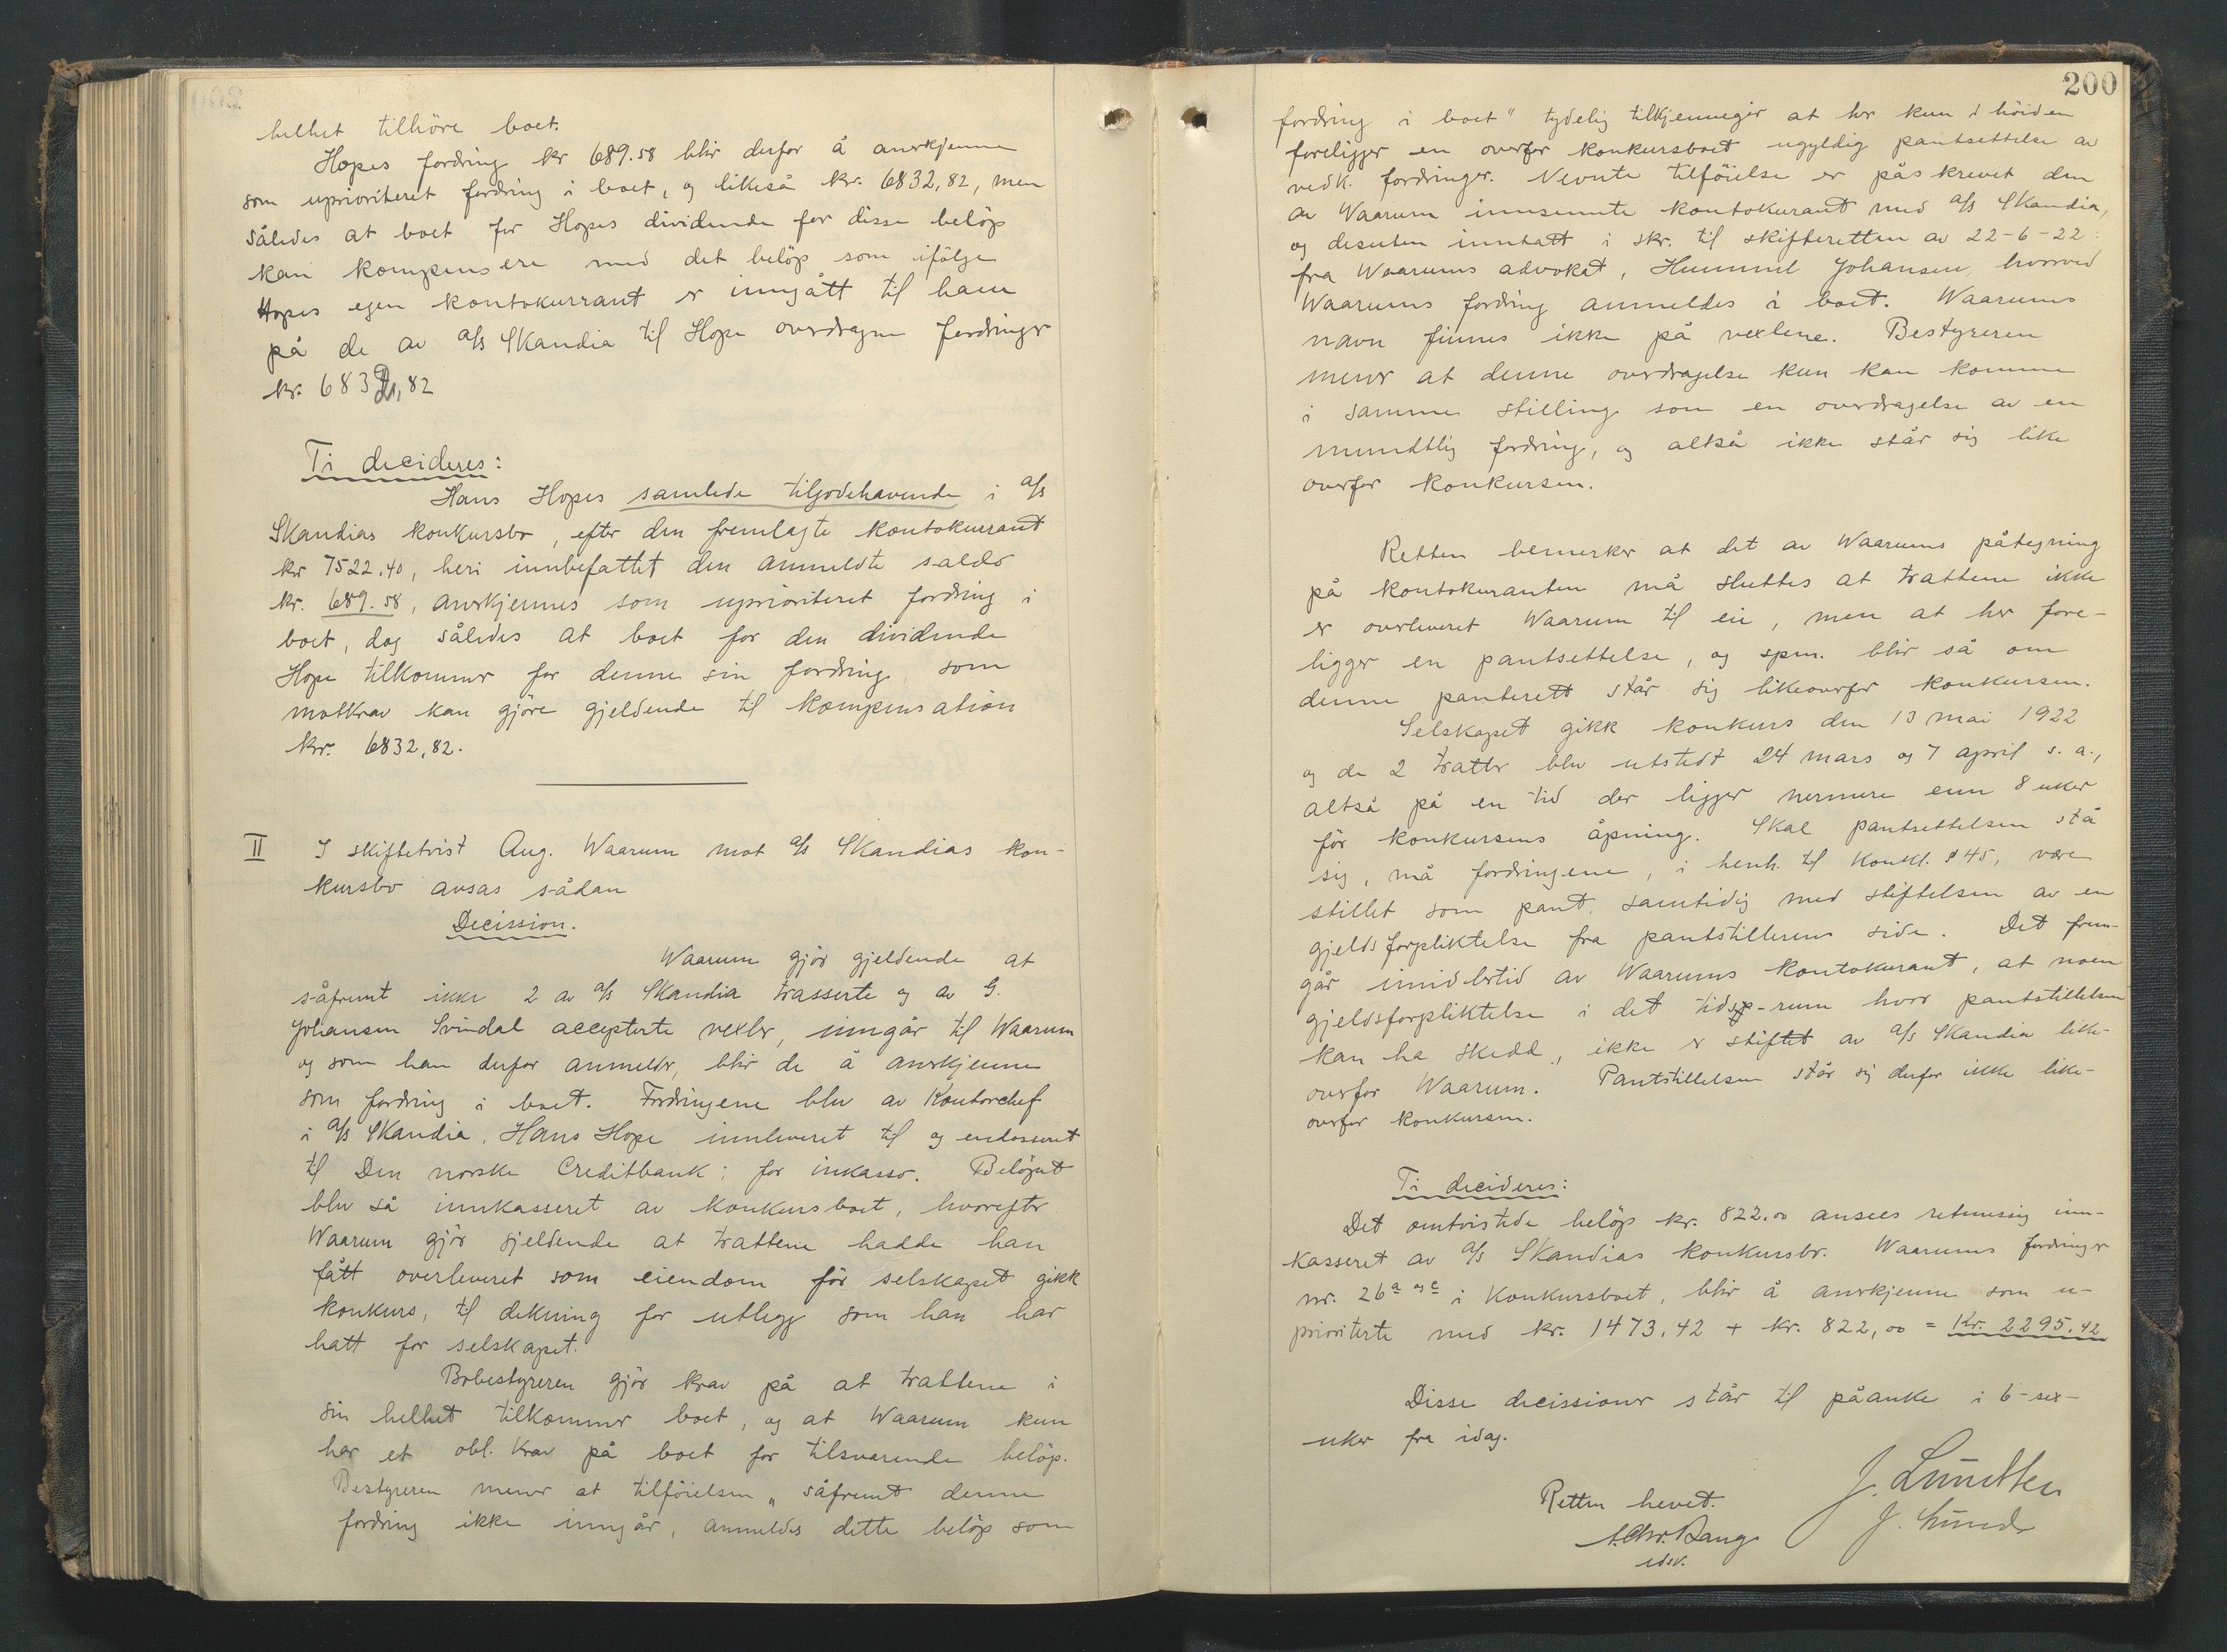 helhet tilhöre boet.
Hopes fordring kr 689.58 blir derfor å anerkjenne
som uprioriteret fordring i boet, og likeså kr. 6832,82, men
således at boet for Hopes dividende for disse beløp
kan kompensere med det beløp som ifölge
Hopes egen kontokurrant er inngått til ham
på de av a/s Skandia til Hope overdragne fordringer
kr. 6832,82
Ti decideres:
Hans Hopes samlede tilgodehavende i a/s
Skandias konkursbo, efter den fremlagte kontokurrant
kr 7522.40, heri innbefattet den anmeldte saldo
kr. 689.58, anerkjennes som uprioriteret fordring i
boet, dog således at boet for den dividende
Hope tilkommer for denne sin fordring som
motkrav kan gjöre gjeldende til kompensation
kr. 6832,82.
II I skiftetvist Aug. Waarum mot a/s Skandias kon-
kursbo avsas sådan
Decission.
Waarum gjör gjeldende at
såfremt ikke 2 av a/s Skandia trasserte og av G.
Johansen Svindal accepterte vexler, inngår til Waarum
og som han derfor anmelder, blir de å anerkjenne
som fordring i boet. Fordringene blev av Kontorchef
i a/s Skandia, Hans Hope innleveret til og endosseret
til Den norske Creditbank: for inkasso. Belöpet
blev så innkasseret av konkursboet, hvorefter
Waarum gjör gjeldende at tratterne hadde han
fått overleveret som eiendom för selskapet gikk
konkurs, til dekning for utlegg som han har
hatt for selskapet.
Bobestyreren gjör krav på at trattene i
sin helhet tilkommer boet, og at Waarum kun
har et obl. krav på boet for tilsvarende belöp.
Bestyreren mener at tilföielsen „ såfremt denne
fordring ikke inngår, anmeldes dette belöp som
200
fordring i boet" tydelig tilkjennegir at her kun i höiden
foreligger en overfor konkursboet ugyldig pantsettelse av
vedk. fordringer. Nevnte tilföielse er påskrevet den
av Waarum innsennte kontokurant med a/s Skandia,
og desuten inntatt i skr. til skifteretten av 22-6-22
fra Waarums advokat, Hummel Johansen, hvorved
Waarums fordring anmeldes i boet. Waarums
navn finnes ikke på vexlene. Bestyreren
mener at denne overdragelse kun kan komme
i samme stilling som en overdragelse av en
mundtlig fordring, og altså ikke står sig like
overfor konkursen.
Retten bemerker at det av Waarums påtegning
på kontokuranten må sluttes at trattene ikke
er overleveret Waarum til eie, men at her fore-
ligger en pantsettelse, og spm. blir så om
denne panterett står sig likeoverfor konkursen.
Selskapet gikk konkurs den 13 mai 1922
og de 2 tratter blev utstedt 24 mars og 7 april s. a.,
altså på en tid der ligger nermere enn 8 uker
för konkursens åpning. Skal pantsettelsen stå
sig, må fordringene, i henh. til konkl. § 45, være
stillet som pant, samtidig med stiftelsen av en
gjeldsforpliktelse fra pantstillerens side. Det frem-
går imidlertid av Waarums kontokurant, at noen
gjeldsforpliktelse i det tids-rum hvor pantstillelsen
kan ha skedd, ikke er stiftet av a/s Skandia like-
overfor Waarum. Pantstillelsen står sig derfor ikke like-
overfor konkursen.
Ti decideres:
Det omtvistede belöp kr. 822.00 ansees retmessig inn-
kasseret av a/s Skandias konkursbo. Waarums fordringer
nr. 26a og c i konkursboet, blir å anerkjenne som u-
prioriterte med kr. 1473.42 + kr. 822,00 = Kr. 2295.42
Disse decissioner står til påanke i 6-sex-
uker fra idag.
Retten hevet.
J. Lund
edsv.